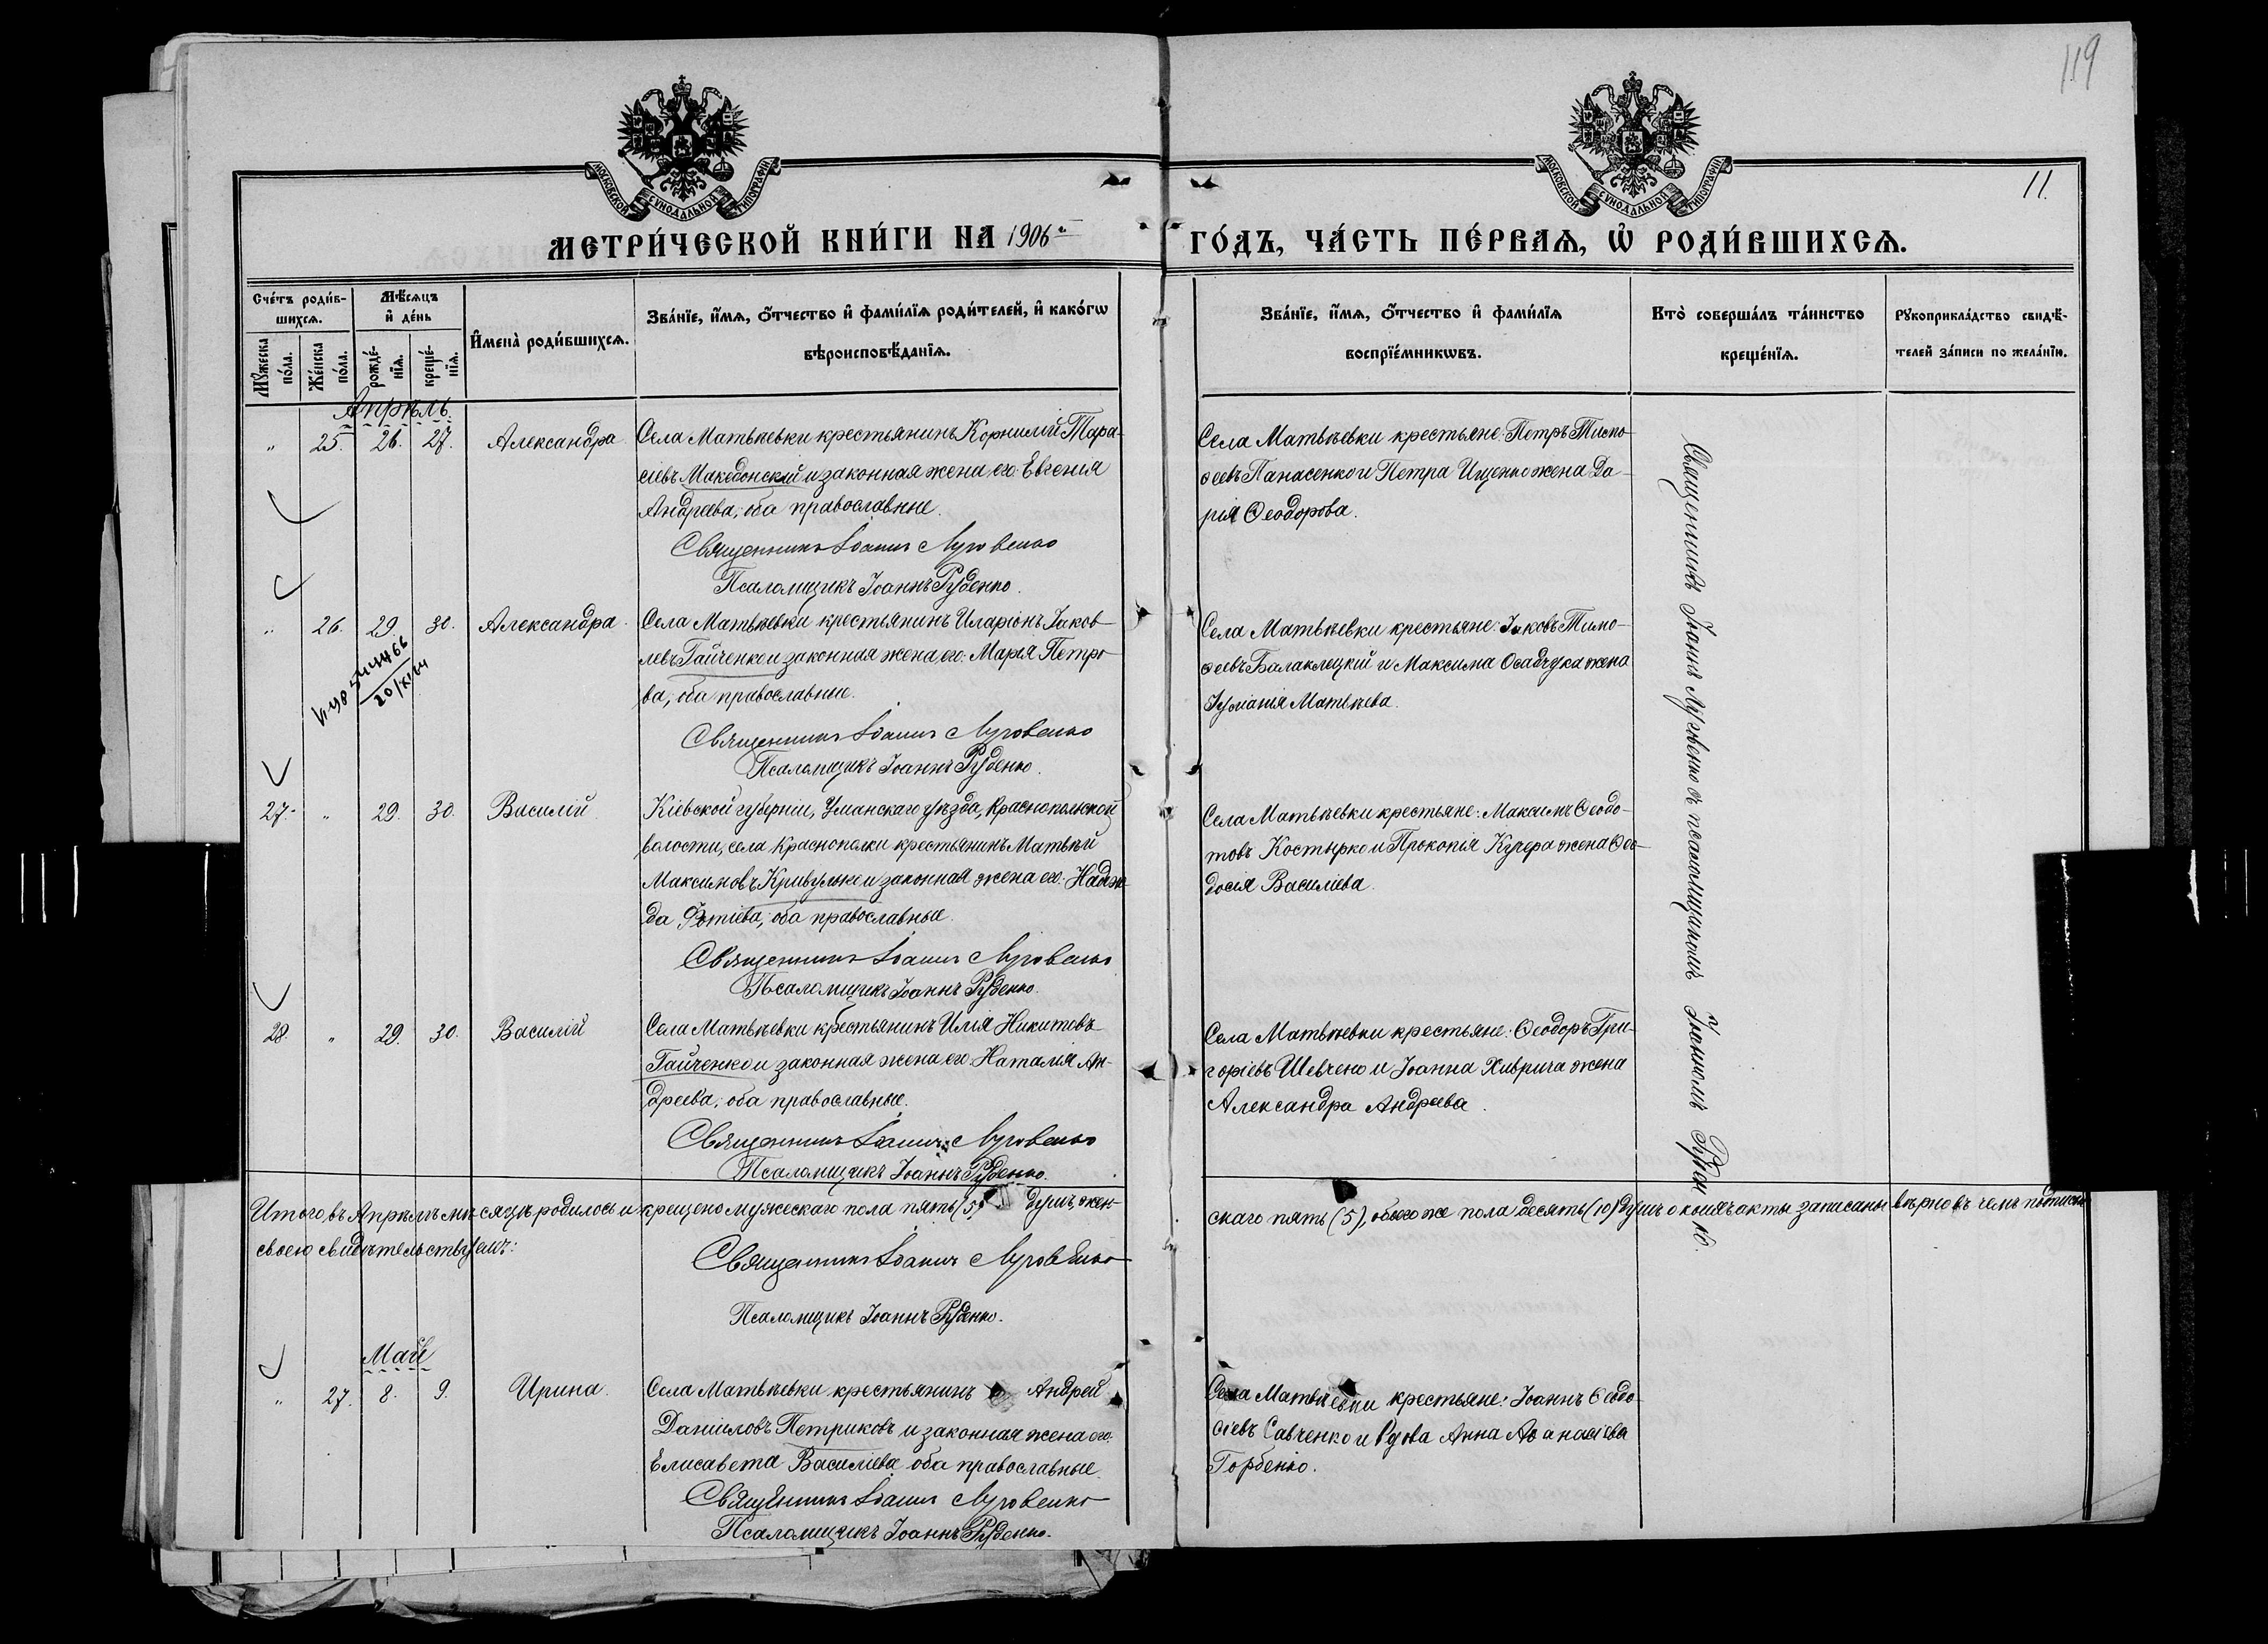 119
11.
МОСКОВСКОЙ СѴНОДАЛЬНОЙ ТИПОГРАФІИ
МОСКОВСКОЙ СѴНОДАЛЬНОЙ ТИПОГРАФІИ
МЕТРИ́ЧЕСКОЙ КНИ́ГИ НА 1906й
ГО́ДЪ, ЧА́СТЬ ПЕ́РВАѦ, Ѡ҆ РОДИ́ВШИХСѦ.
Сче́тъ роди́в-
шихсѧ.
Мꙋ́жеска по́ла.
Же́нска по́ла.
Мѣ́сѧцъ
и҆ де́нь
рожде́-
нїѧ.
креще́-
нїѧ.
И҆мена̀ роди́вшихсѧ.
Зва́нїе, и҆́мѧ, ѻ҆́тчество и҆ фами́лїѧ роди́телей, и҆ како́гѡ
вѣроисповѣ́данїѧ.
Зва́нїе, и҆́мѧ, ѻ҆́тчество и҆ фами́лїѧ
воспрїе́мникѡвъ.
Кто̀ соверша́лъ та́инство
креще́нїѧ.
Рꙋкоприкла́дство свидѣ́-
телей за́писи по жела́нїю.
Апрѣль.
" 25. 26. 27. Александра
Села Матвѣевки крестьянинъ Корнилій Тара-
сіевъ Македонскій и законная жена его Евгенія
Андреева, оба православные.
Священникъ Іоаннъ Луговенко
Псаломщикъ Іоаннъ Руденко.
Села Матвѣевки крестьяне: Петръ Тимо-
ѳеевъ Панасенко и Петра Ищенко жена Да-
рія Ѳеодорова.
" 26. 29. 30. Александра
20/XI 64
Села Матвѣевки крестьянинъ Иларіонъ Іаков-
левъ Гайченко и законная жена его Марія Петро-
ва, оба православные.
Священникъ Іоаннъ Луговенко
Псаломщикъ Іоаннъ Руденко.
Села Матвѣевки крестьяне: Іаковъ Тимо-
ѳеевъ Балаклецкій и Максима Осадчука жена
Іуліанія Матвѣева.
27. " 29. 30. Василій
Кіевской губерніи, Уманскаго уѣзда, Краснопольской
волости, села Краснополки крестьянинъ Матвѣй
Максимовъ Кривулько и законная жена его: Надеж-
да Фотіева, оба православные.
Священникъ Іоаннъ Луговенко
Псаломщикъ Іоаннъ Руденко.
Села Матвѣевки крестьяне: Максимъ Ѳеодо-
товъ Костырко и Прокопія Кучера жена Ѳео-
досія Василіева.
28. " 29. 30. Василій
Села Матвѣевки крестьянинъ Илія Никитовъ
Гайченко и законная жена его Наталія Ан-
дреева, оба православные.
Священникъ Іоаннъ Луговенко
Псаломщикъ Іоаннъ Руденко.
Села Матвѣевки крестьяне: Ѳеодоръ Гри-
горіевъ Шевченко и Іоанна Хиврича жена
Александра Андреева.
Священникъ Іоаннъ Луговенко съ псаломщикомъ Іоанномъ Руденко.
Итого, въ Апрѣлѣ мѣсяцѣ родилось и крещено мужескаго пола пять (5) душъ, жен-
скаго пять (5), обоего же пола десять (10) душъ о коихъ акты записаны вѣрно въ чемъ подписью
своею свидѣтельствуемъ:
Священникъ Іоаннъ Луговенко
Псаломщикъ Іоаннъ Руденко.
Май
" 27. 8. 9. Ирина.
Села Матвѣевки крестьянинъ Андрей
Даніиловъ Петриковъ и законная жена его:
Елисавета Василіева оба православные.
Священникъ Іоаннъ Луговенко
Псаломщикъ Іоаннъ Руденко.
Села Матвѣевки крестьяне: Іоаннъ Ѳеодо-
сіевъ Савченко и вдова Анна Аѳанасіева
Горбенко.